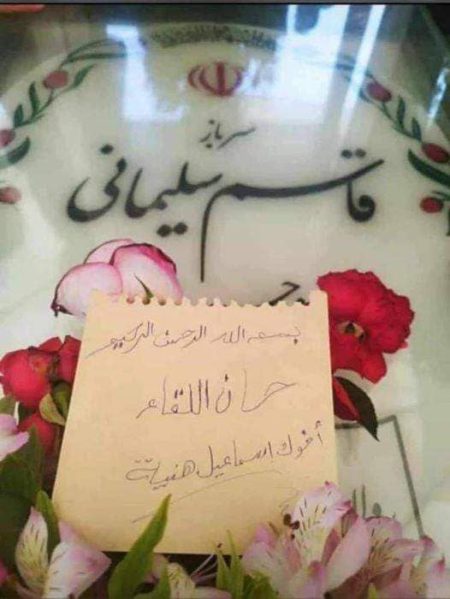 سرباز
قاسم سلیمانی
بسم الله الرحمن الرحيم
حان اللقاء
أخوك اسماعيل هنية